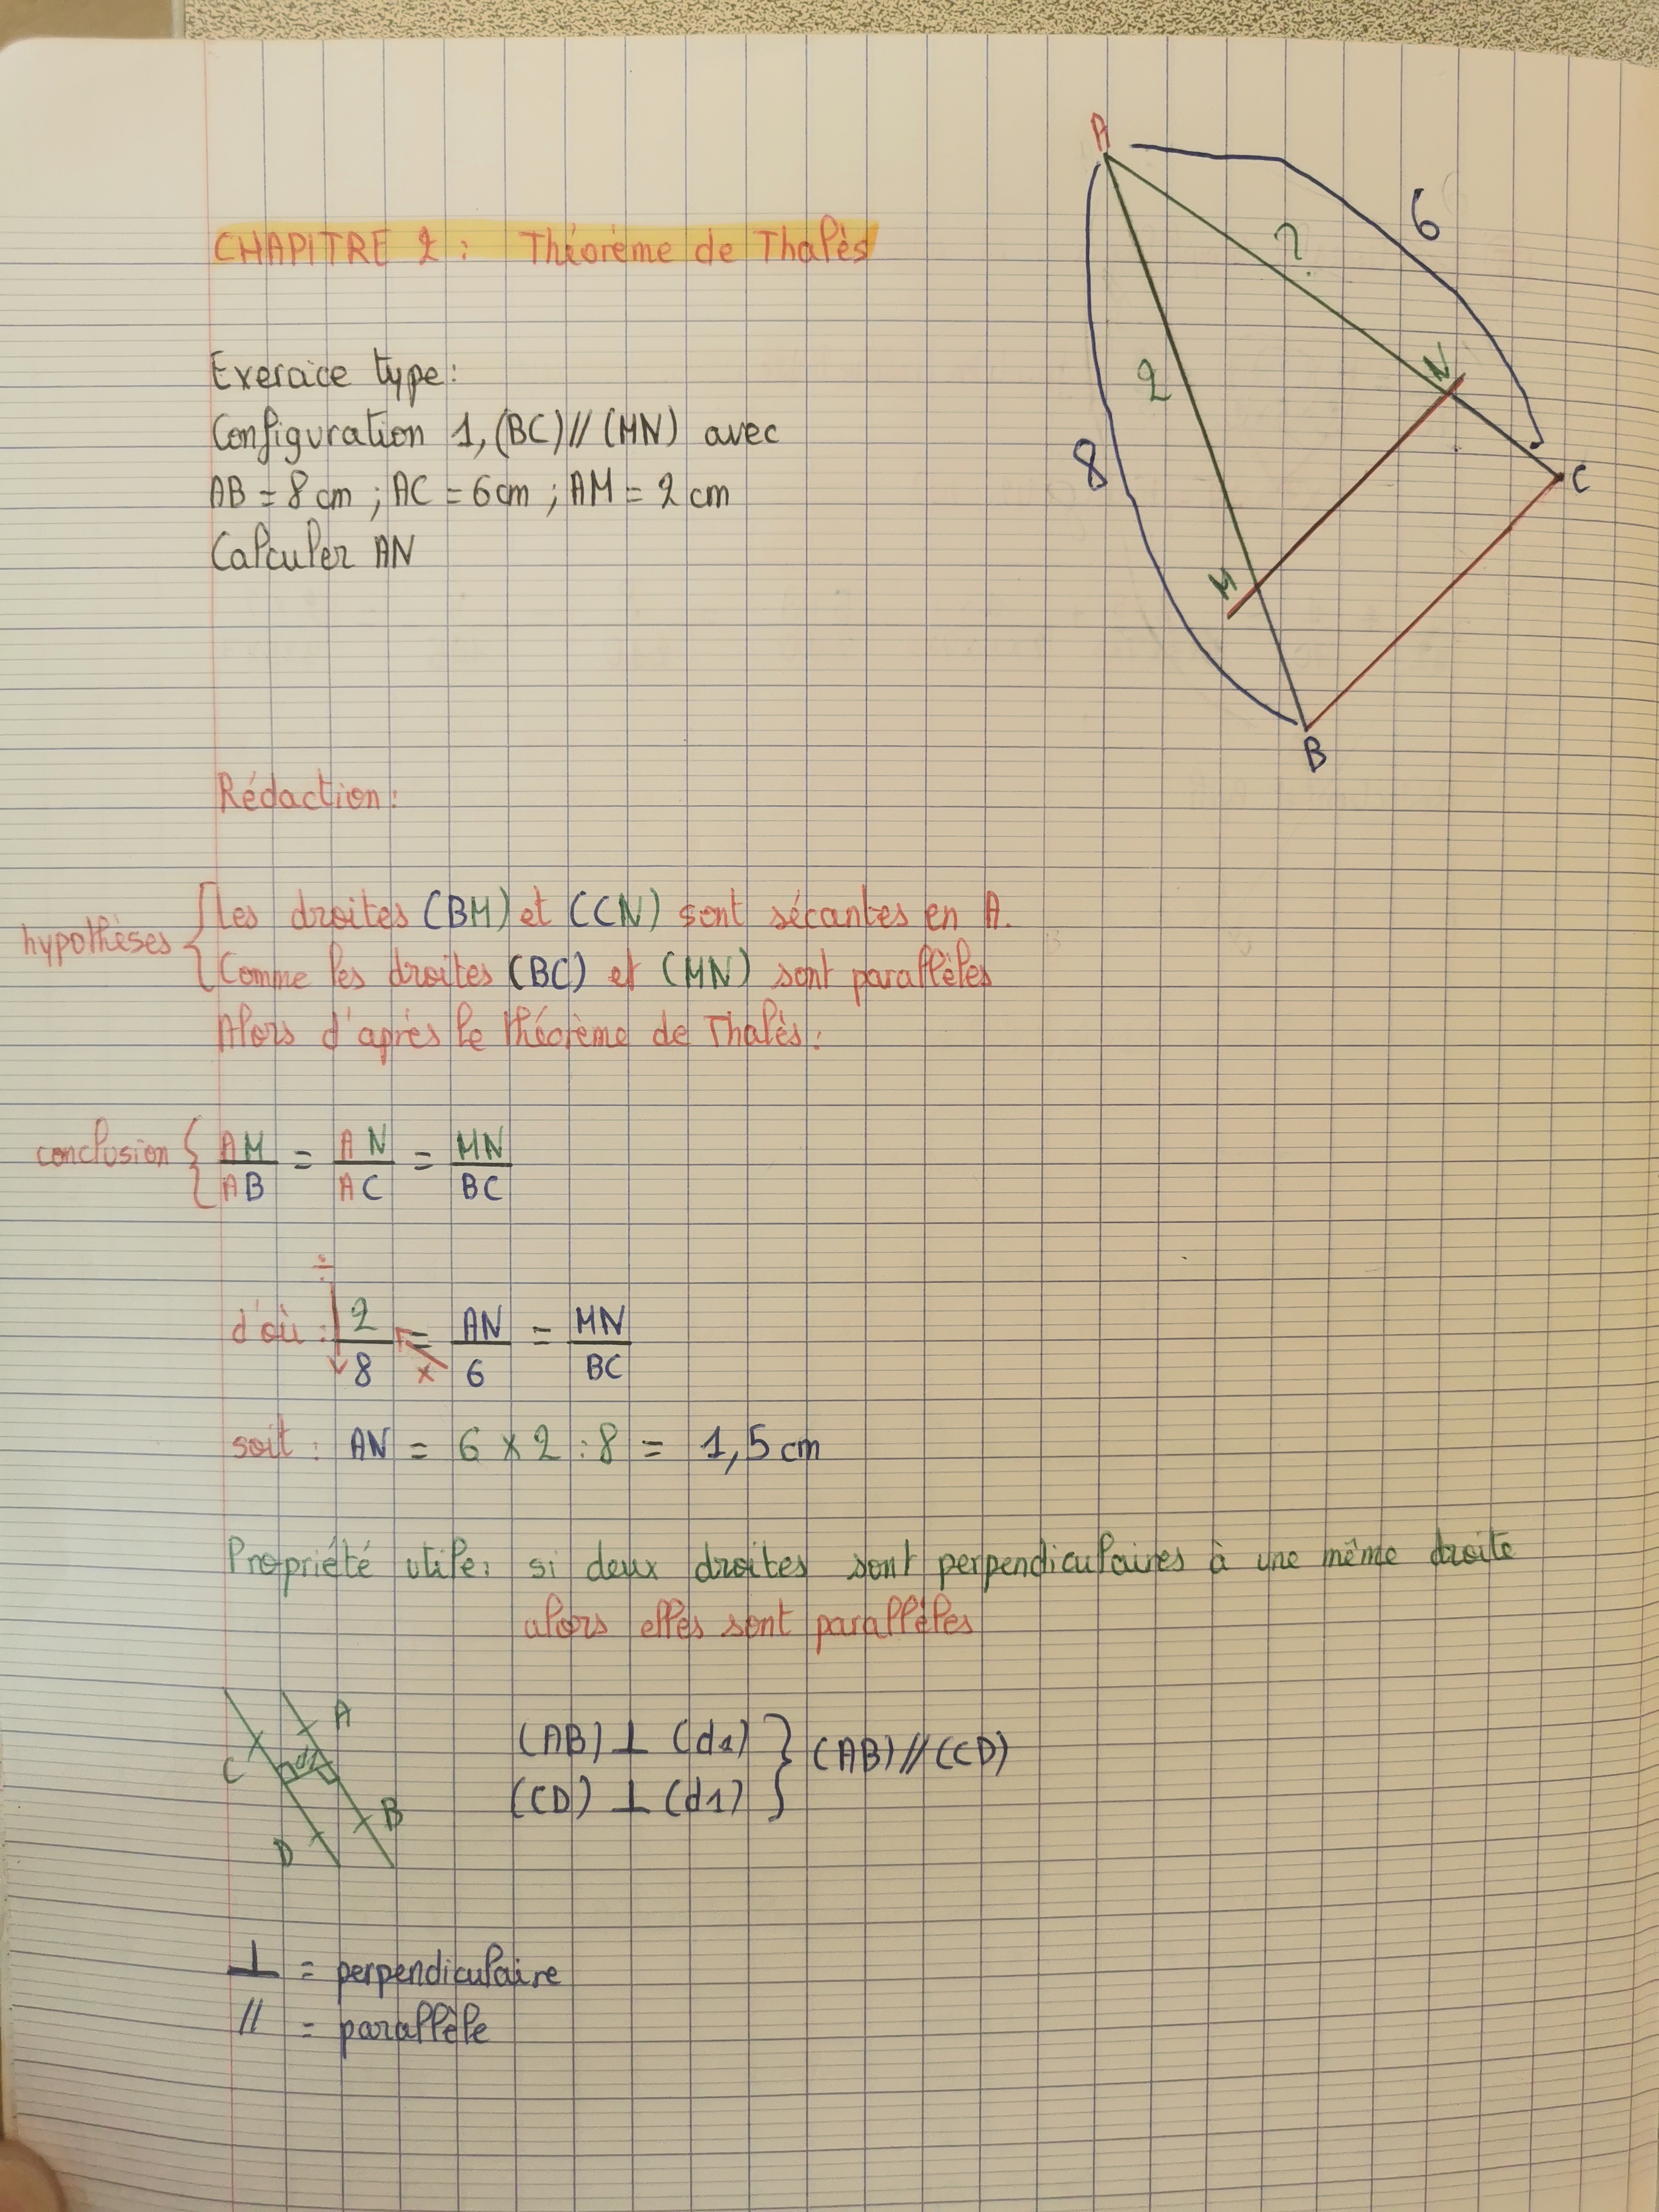 CHAPITRE 2 : Théorème de Thalès
A
6
?
N
2
8
C
M
B
Exercice type :
Configuration 1, (BC) // (MN) avec
AB = 8 cm ; AC = 6 cm ; AM = 2 cm
Calculer AN
Rédaction :
hypothèses { Les droites (BM) et (CN) sont sécantes en A.
Comme les droites (BC) et (MN) sont parallèles
Alors d'après le théorème de Thalès :
conclusion { AM/AB = AN/AC = MN/BC
÷
d'où : 2/8 = AN/6 = MN/BC
×
soit : AN = 6 × 2 : 8 = 1,5 cm
Propriété utile : si deux droites sont perpendiculaires à une même droite
alors elles sont parallèles
A
C
d1
B
D
(AB) ⊥ (d1) } (AB) // (CD)
(CD) ⊥ (d1)
⊥ = perpendiculaire
// = parallèle